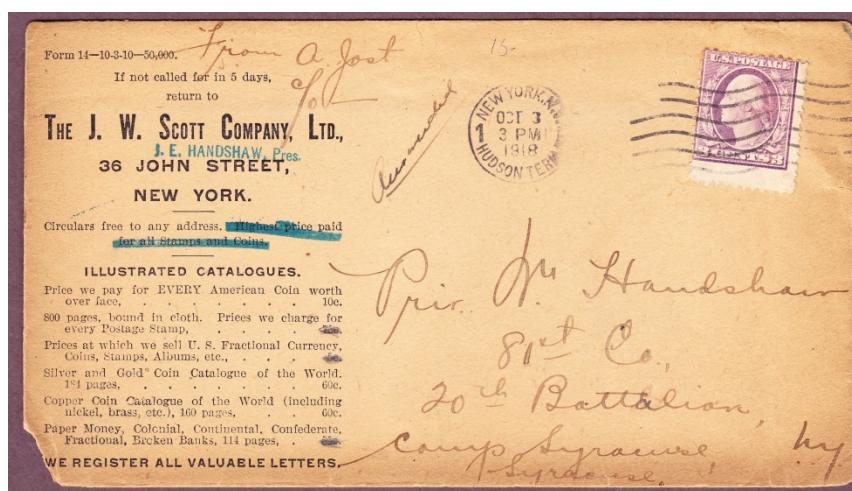 Form 14—10-3-10—50,000.
From A. Jost
15-
If not called for in 5 days,
return to
THE J. W. SCOTT COMPANY, LTD.,
J. E. HANDSHAW, Pres.
36 JOHN STREET,
NEW YORK.
Circulars free to any address. Highest price paid
for all Stamps and Coins.
ILLUSTRATED CATALOGUES.
Price we pay for EVERY American Coin worth
over face, . . . . . . . 10c.
800 pages, bound in cloth. Prices we charge for
every Postage Stamp, . . . .
Prices at which we sell U. S. Fractional Currency,
Coins, Stamps, Albums, etc., . . .
Silver and Gold Coin Catalogue of the World.
184 pages, . . . . . . . 60c.
Copper Coin Catalogue of the World (including
nickel, brass, etc.), 160 pages, . . . 60c.
Paper Money, Colonial, Continental, Confederate,
Fractional, Broken Banks, 114 pages, .
WE REGISTER ALL VALUABLE LETTERS.
NEW YORK, N.Y.
1
OCT 3
3 PM
1918
HUDSON TERM
U.S. POSTAGE
3 CENTS 3
Priv. Wm Handshaw
81st Co,
20th Battalion,
Camp Syracuse, NY
Syracuse,